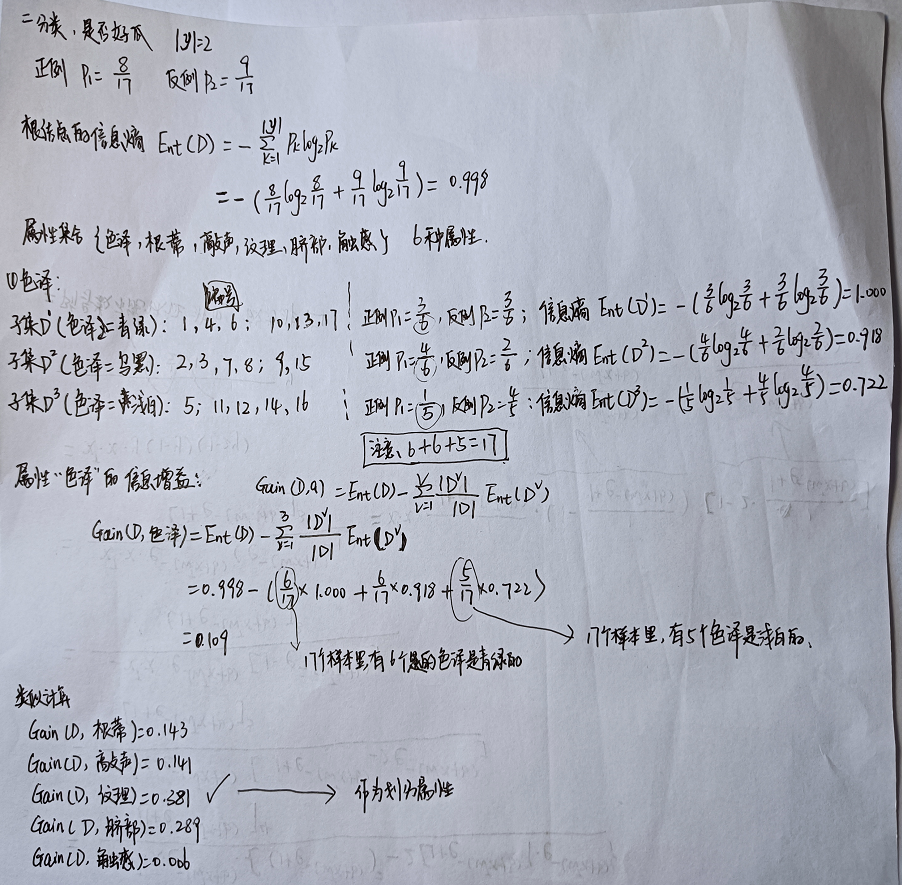 二分类，是否好瓜 |y|=2
正例 P₁=8/17 反例 P₂=9/17
根结点的信息熵 Ent(D) = -∑_{k=1}^{|y|} Pₖlog₂Pₖ
= -(8/17 log₂ 8/17 + 9/17 log₂ 9/17) = 0.998
属性集合 {色泽，根蒂，敲声，纹理，脐部，触感} 6种属性.
①色泽: 编号
子集D¹(色泽=青绿): 1, 4, 6; 10, 13, 17 正例P₁=3/6, 反例P₂=3/6; 信息熵 Ent(D¹) = -(3/6 log₂ 3/6 + 3/6 log₂ 3/6) = 1.000
子集D²(色泽=乌黑): 2, 3, 7, 8; 9, 15 正例P₁=4/6, 反例P₂=2/6; 信息熵 Ent(D²) = -(4/6 log₂ 4/6 + 2/6 log₂ 2/6) = 0.918
子集D³(色泽=浅白): 5; 11, 12, 14, 16 正例P₁=1/5, 反例P₂=4/5; 信息熵 Ent(D³) = -(1/5 log₂ 1/5 + 4/5 log₂ 4/5) = 0.722
注意、6+6+5=17
属性"色泽"的信息增益: Gain(D,a) = Ent(D) - ∑_{v=1}^{V} |Dᵛ|/|D| Ent(Dᵛ)
Gain(D,色泽) = Ent(D) - ∑_{v=1}^{3} |Dᵛ|/|D| Ent(Dᵛ)
= 0.998 - (6/17 × 1.000 + 6/17 × 0.918 + 5/17 × 0.722)
= 0.109
17个样本里，有5个色泽是浅白的、
17个样本里，有6个的色泽是青绿的
类似计算
Gain(D, 根蒂)=0.143
Gain(D, 敲声)=0.141
Gain(D, 纹理)=0.381 ✓ → 作为划分属性
Gain(D, 脐部)=0.289
Gain(D, 触感)=0.006